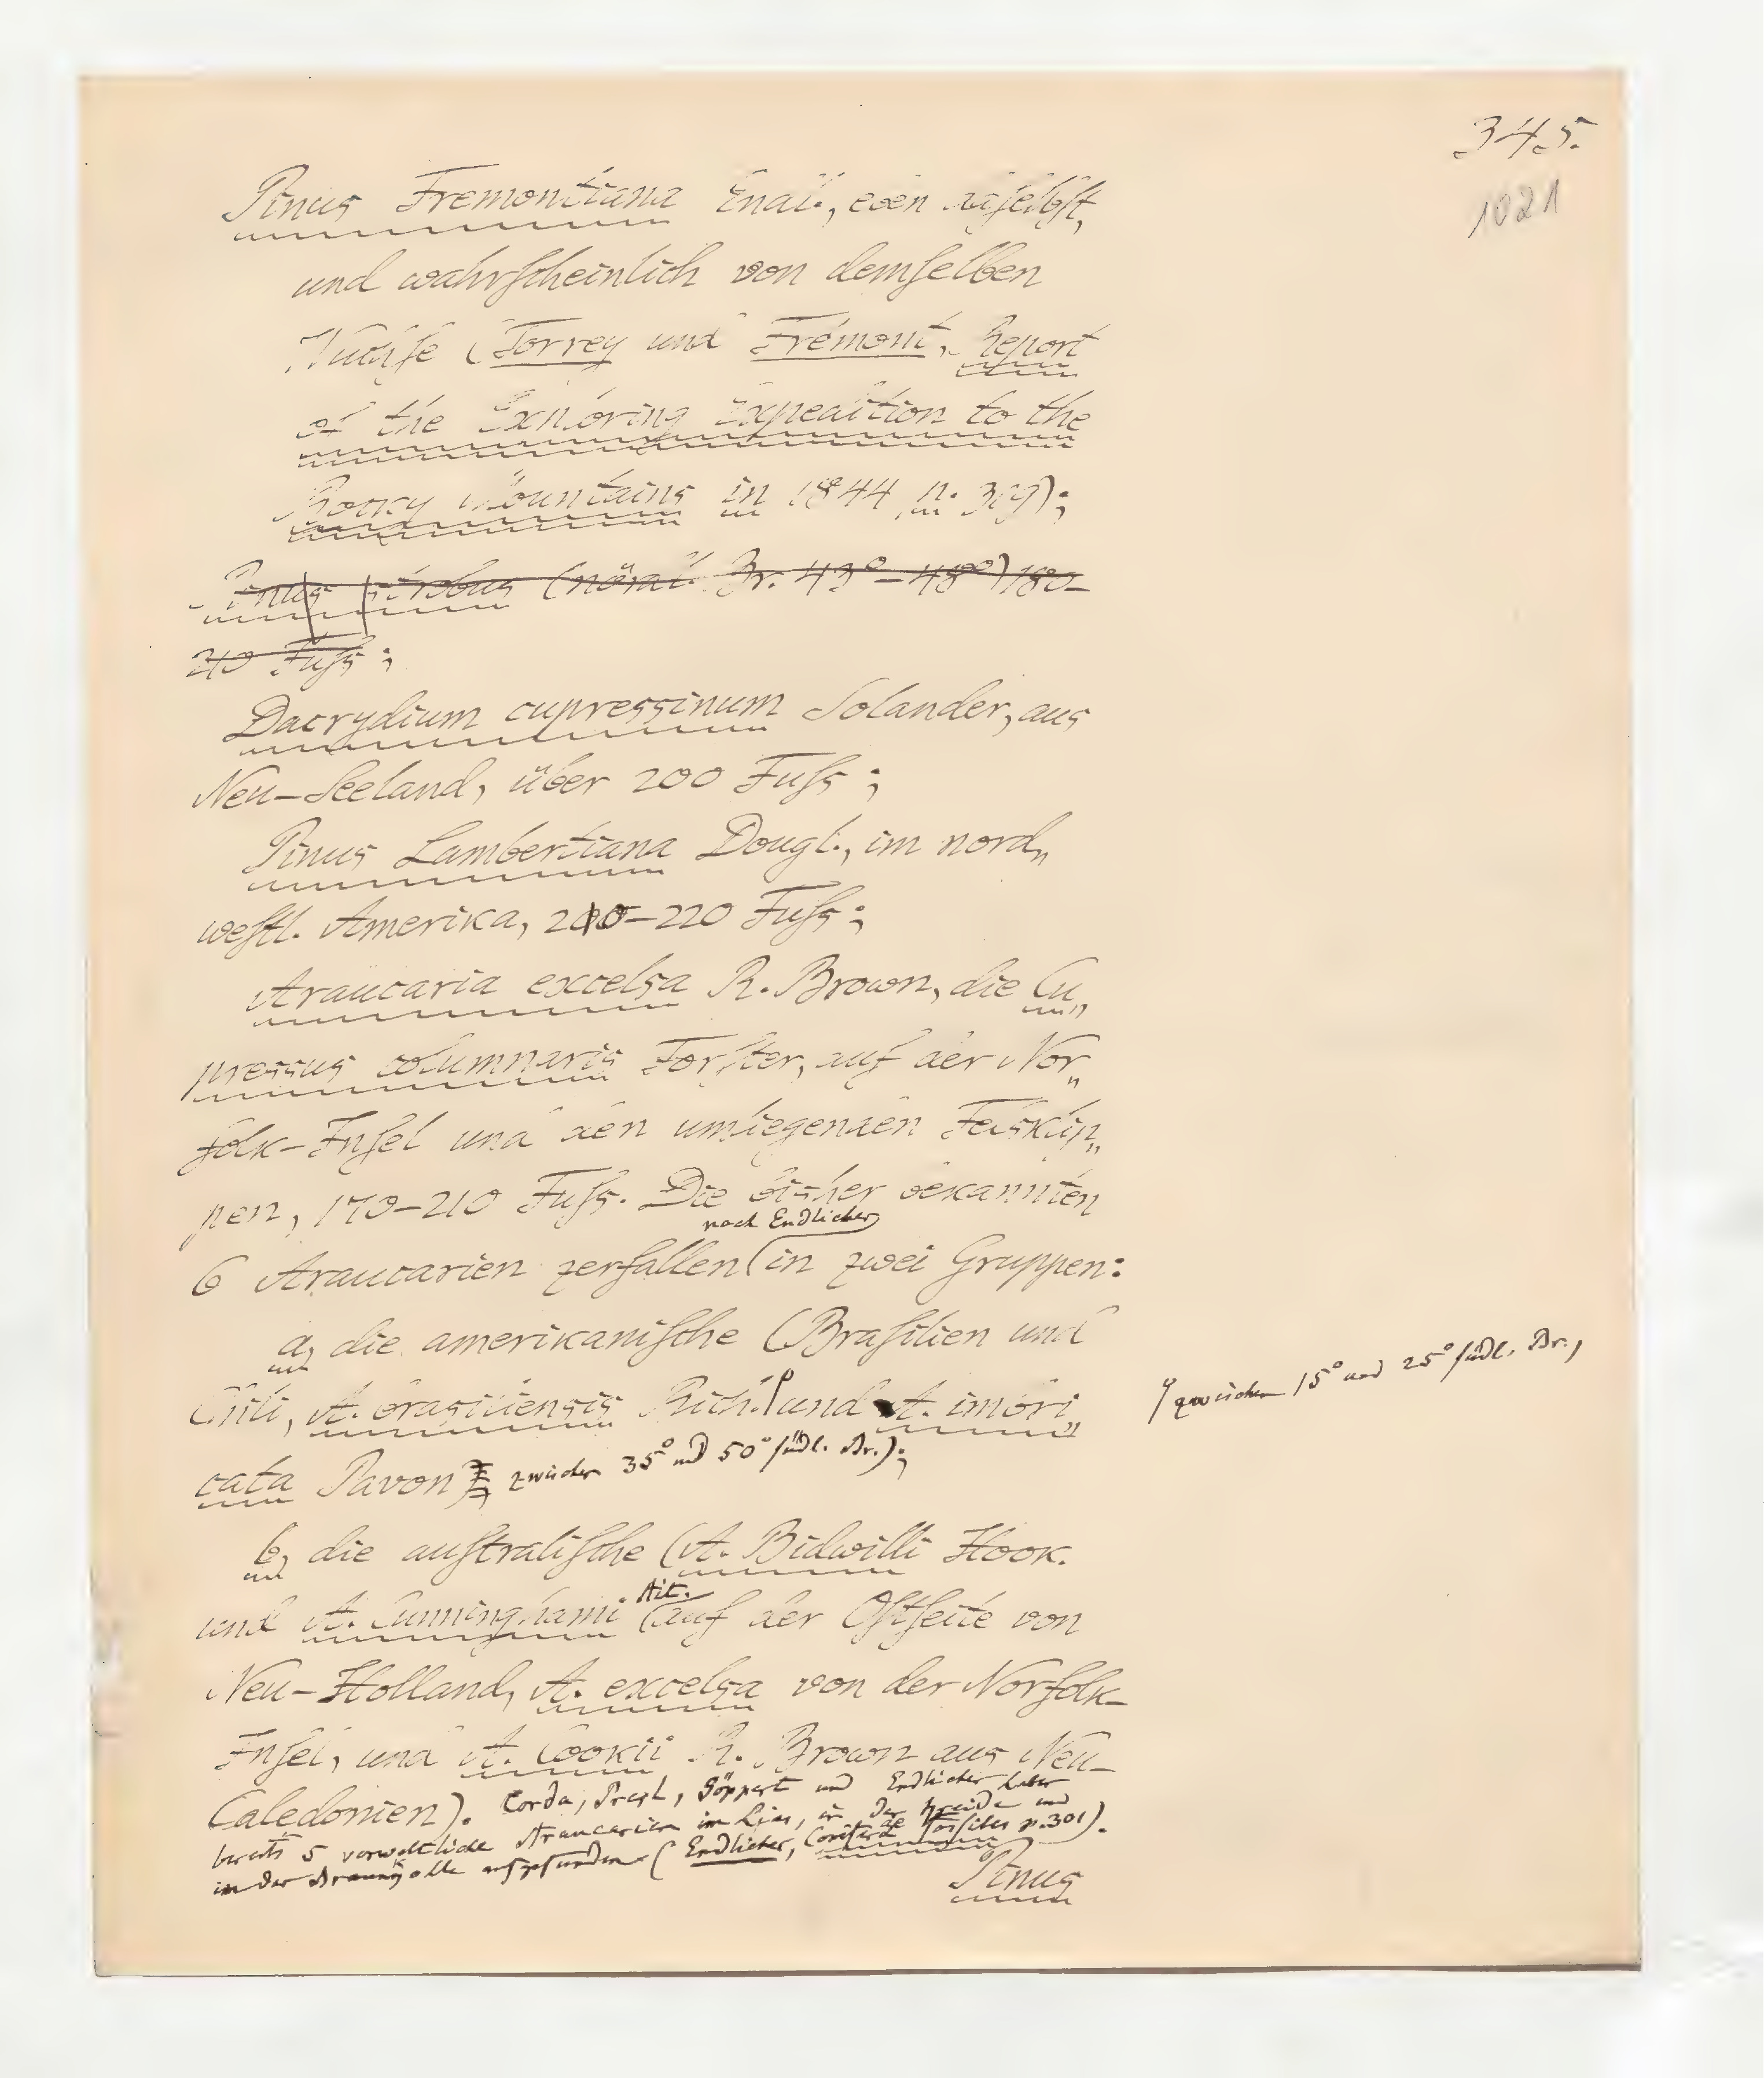 345.
1021
Pinus Fremontiana Endl., eben daſelbſt,
und wahrſcheinlich von demſelben
Wuchſe (Torrey und Frémont, Report
of the Exploring Expedition to the
Rocky Mountains in 1844 p. 319);
Pinus strobus (nördl. Br. 43°–45°) 180–
210 Fuſs;
Dacrydium cupressinum Solander, aus
Neu-Seeland, über 200 Fuſs;
Pinus Lambertiana Dougl., im nord„
weſtl. Amerika, 210–220 Fuſs;
Araucaria excelsa R. Brown, die Cu„
pressus columnaris Forſter, auf der Nor„
folk-Inſel und den umliegenden Felsklip„
pen, 170–210 Fuſs. Die bisher bekannten
nach Endlicher
6 Araucarien zerfallen in zwei Gruppen:
a, die amerikaniſche (Braſilien und
Chili, A. brasiliensis Rich. und A. imbri„
zwischen 15° und 25° ſüdl. Br.,
cata Pavon zwischen 35° und 50° ſüdl. Br.);
b, die auſtraliſche (A. Bidwilli Hook.
Ait.
und A. Cunninghami auf der Oſtſeite von
Neu-Holland, A. excelsa von der Norfolk-
Inſel, und A. Cookii R. Brown aus Neu-
Caledonien). Corda, Presl, Göppert und Endlicher haben
bereits 5 vorweltliche Araucarien im Lias, in der Kreide und
in der Braunkolle aufgefunden (Endlicher, Coniferae fossiles p. 301).
Pinus